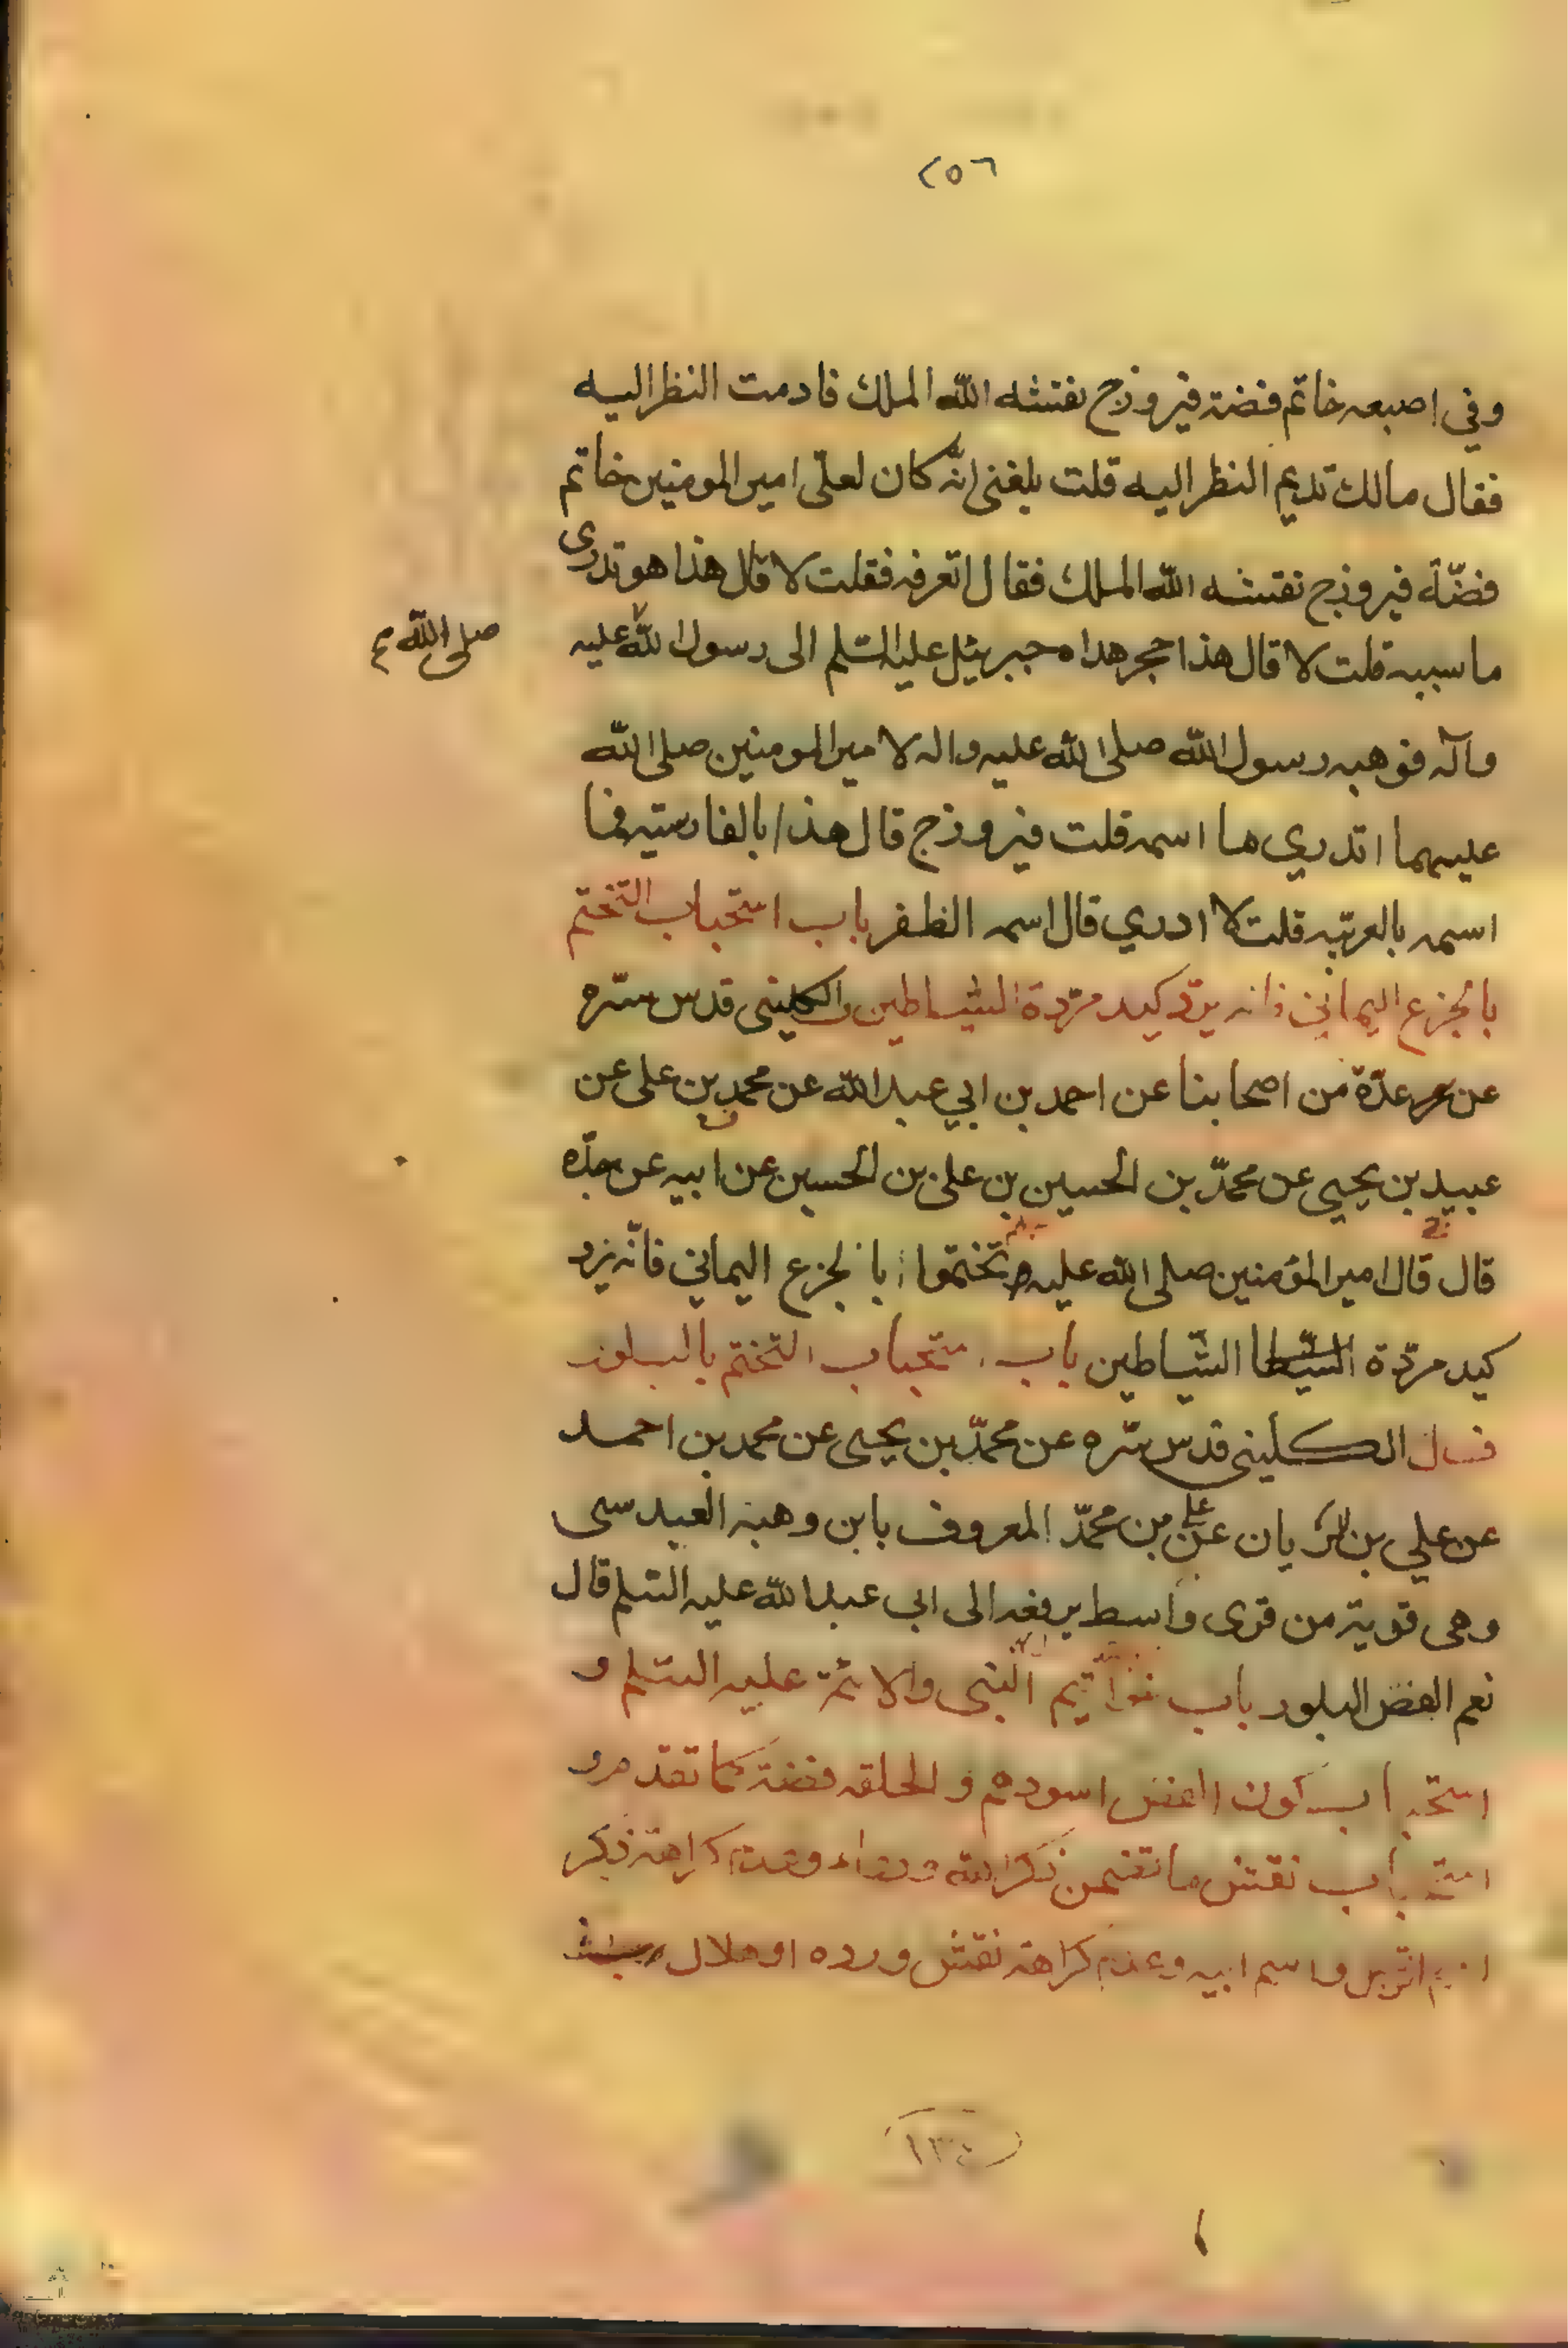 ٢٥٦
وفي اصبعه خاتم فضة فيروزج نقشه الله الملك فادمت النظر اليه
فقال مالك تديم النظر اليه قلت بلغني انّه كان لعلى امير المومنين خاتم
فضّة فيروزج نقشه الله الملك فقال اتعرفه فقلت لا قال هذا هو تدرى
ما سببه قلت لا قال هذا حجر هداه جبرئيل عليه السّلم الى رسول الله عليه
صلى الله
وآله فوهبه رسول الله صلى الله عليه واله لامير المومنين صلى الله
عليهما اتدري ما اسمه قلت فيروزج قال هذا بالفارسيّه فما
اسمه بالعربيّه قلت لا ادري قال اسمه الظفر باب استحباب التختم
بالجزع اليماني فانه يردّ كيد مردة الشياطين الكليني قدس سرّه
عن عدّة من اصحابنا عن احمد بن ابي عبد الله عن محمد بن على عن
عبيد بن يحيى عن محمّد بن الحسين بن على بن الحسين عن ابيه عن جدّه
قال قال امير المؤمنين صلى الله عليه تختموا بالجزع اليماني فانّه يرد
كيد مردّة الشيطا الشّياطين باب استحباب التختم بالبلور
قال الكليني قدس سّره عن محمّد بن يحيى عن محمد بن احمد
عن علي بن الريان عن على بن محمّد المعروف بابن وهبه العبدسى
وهى قرية من قرى واسط يرفعه الى ابى عبد الله عليه السّلم قال
نعم الفص البلور باب خواتيم النبى والائمّة عليه السّلم و
استحباب كون الفص اسودهم والحلقه فضة كما تقدم و
استحباب نقش ما تضمن ذكر الله وعدم كراهة ذكر
اسم الرجل واسم ابيه وعدم كراهة نقش ورده او هلال
١٣٤